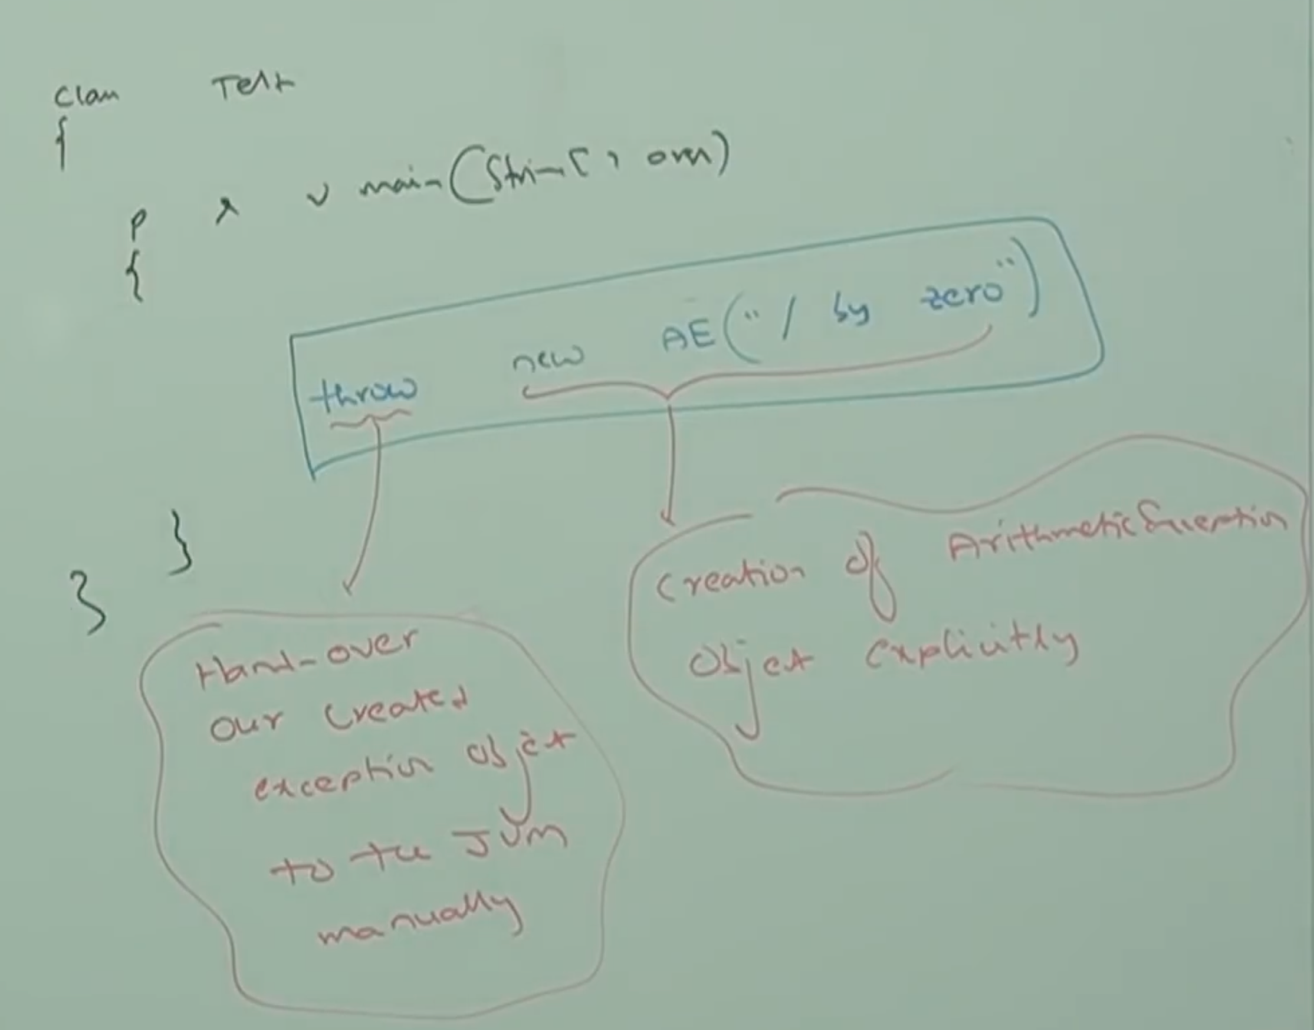 class Test
{
p s v main(String[] args)
{
throw new AE("/ by zero")
}
}
Hand-over
our created
exception object
to the JVM
manually
Creation of ArithmeticException
object explicitly